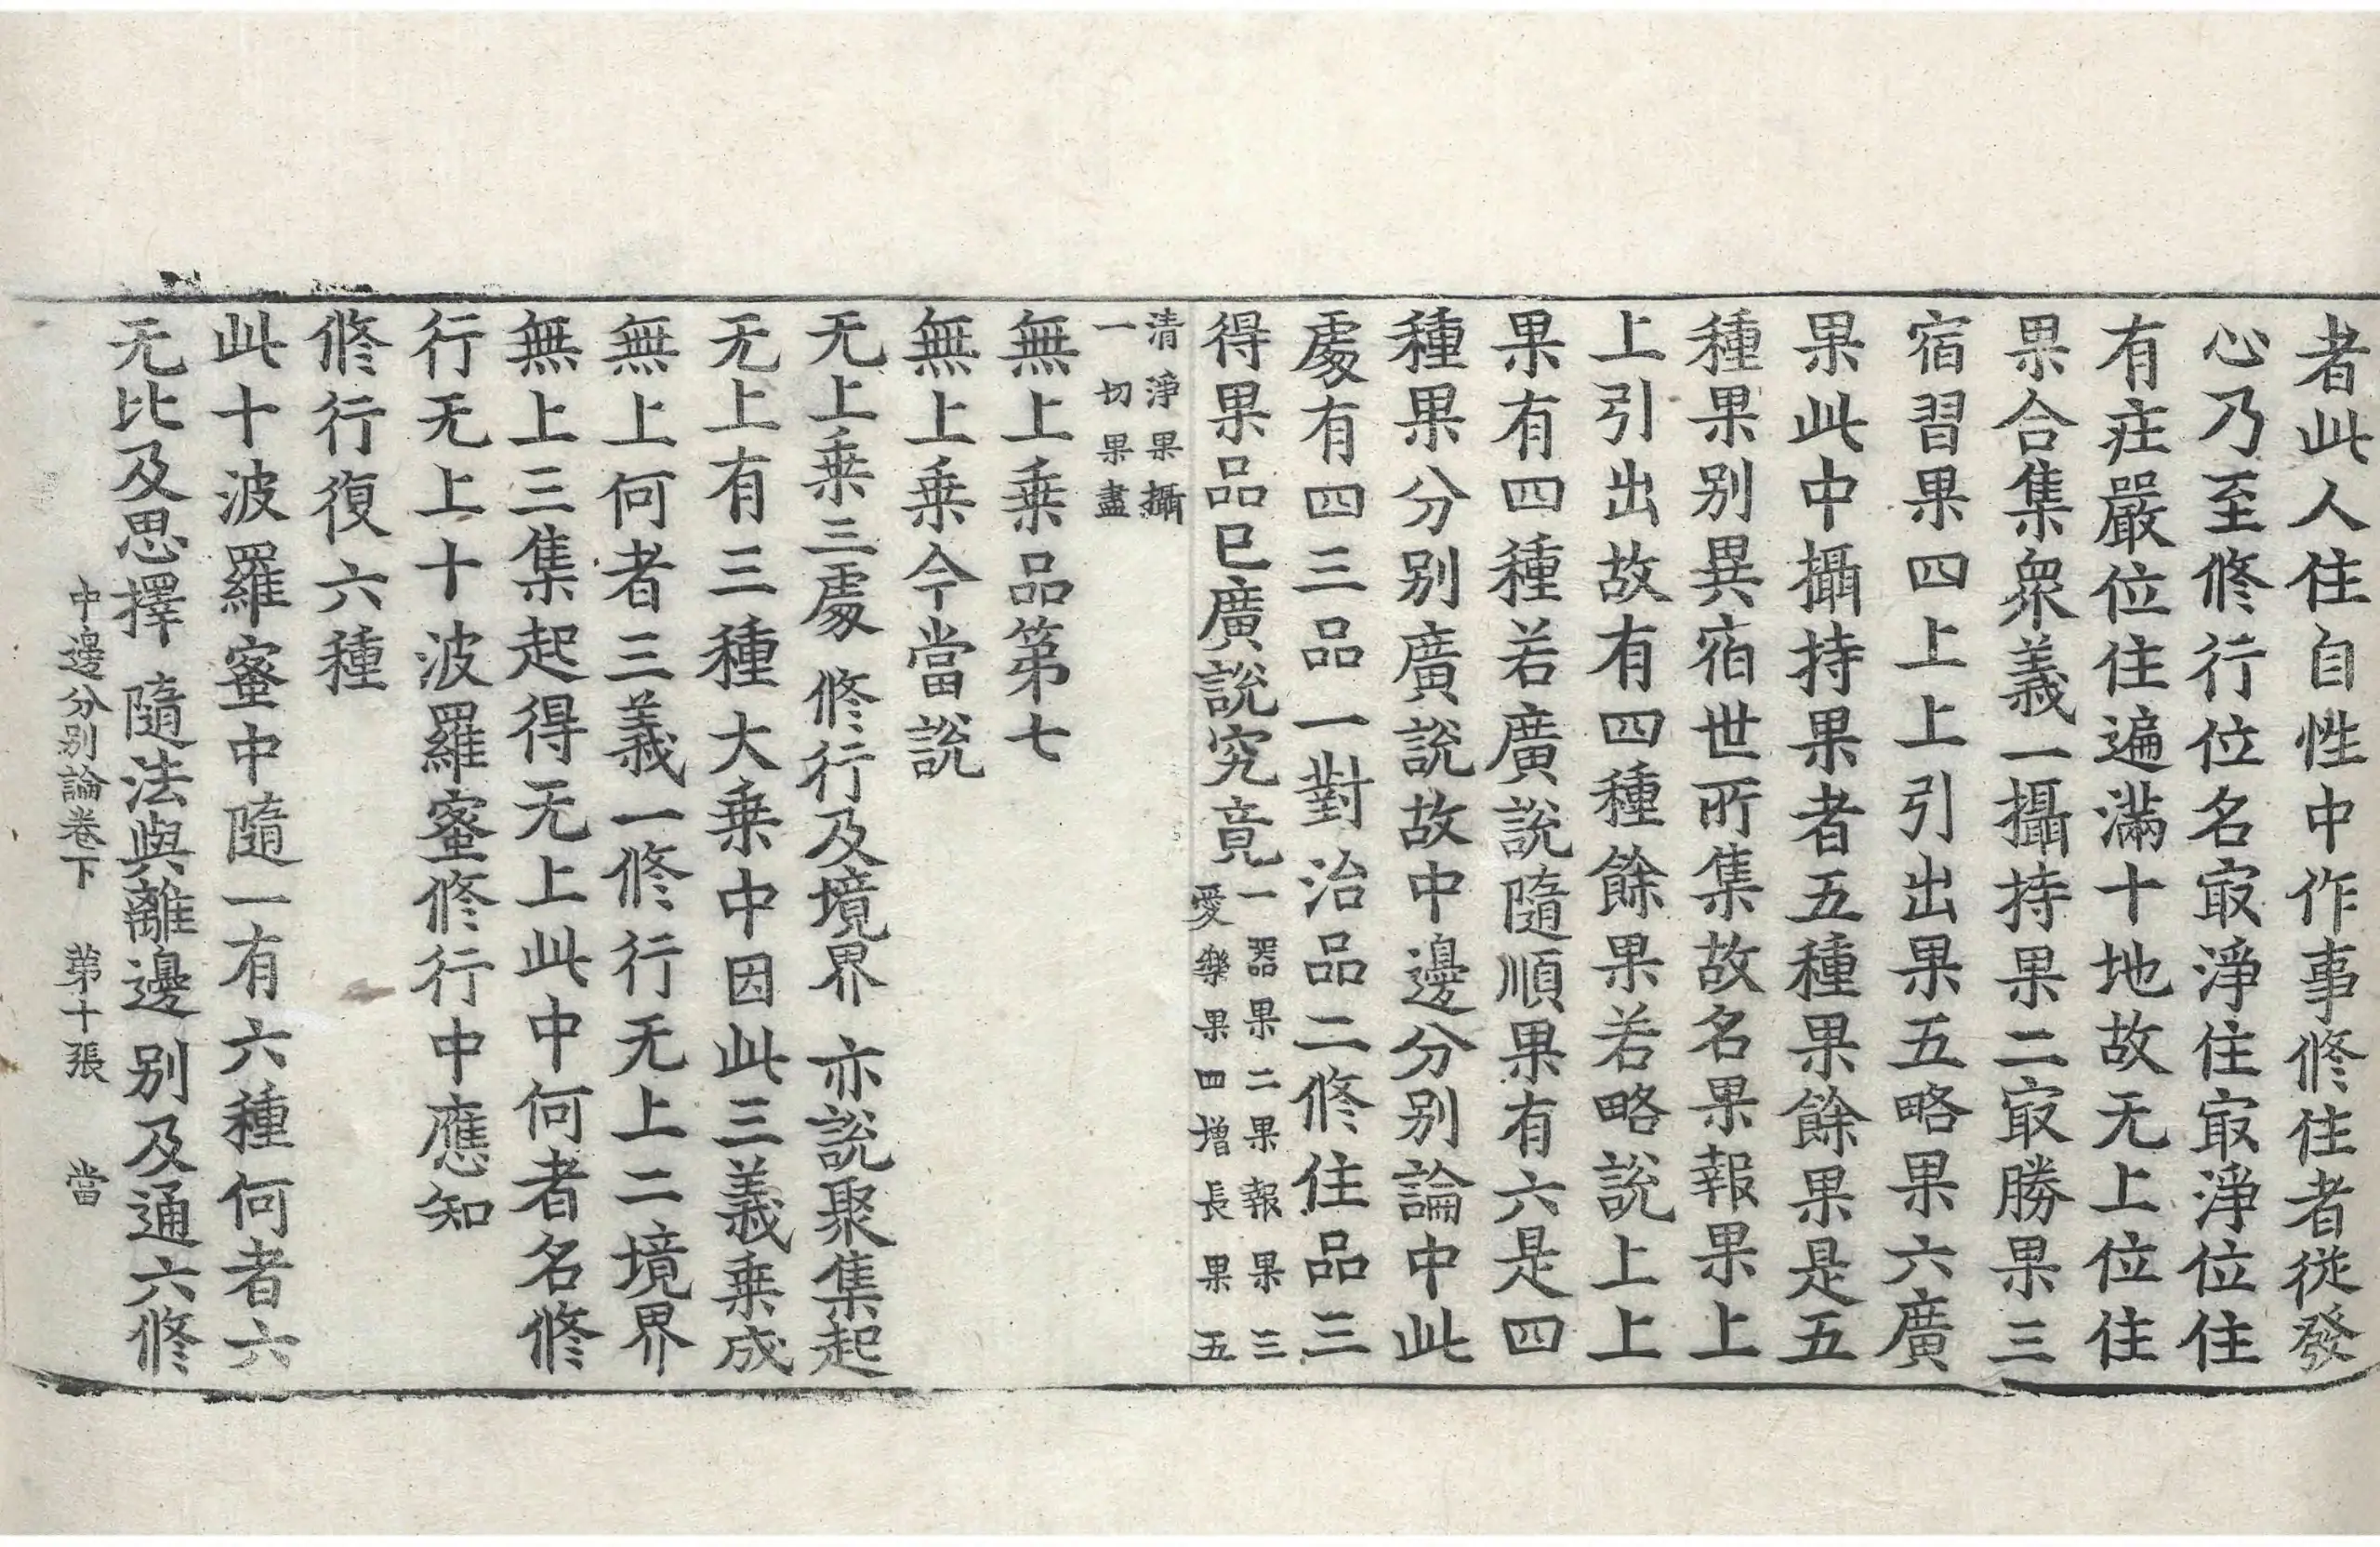 者此人住自性中作事修住者從發
心乃至修行位名㝡淨住㝡淨位住
有莊嚴位住遍滿十地故无上位住
果合集衆義一攝持果二㝡勝果三
宿習果四上上引出果五略果六廣
果此中攝持果者五種果餘果是五
種果别異宿世所集故名果報果上
上引出故有四種餘果若略說上上
果有四種若廣說隨順果有六是四
種果分别廣說故中邊分别論中此
處有四三品一對治品二修住品三
得果品已廣說究竟一器果二果報果三
愛樂果四增長果五
清淨果攝
一切果盡
無上乗品第七
無上乗今當說
无上乗三處 修行及境界 亦說聚集起
无上有三種大乗中因此三義乗成
無上何者三義一修行无上二境界
無上三集起得无上此中何者名修
行无上十波羅蜜修行中應知
修行復六種
此十波羅蜜中隨一有六種何者六
无比及思擇 隨法與離邊 别及通六修
中邊分别論卷下 第十張 當